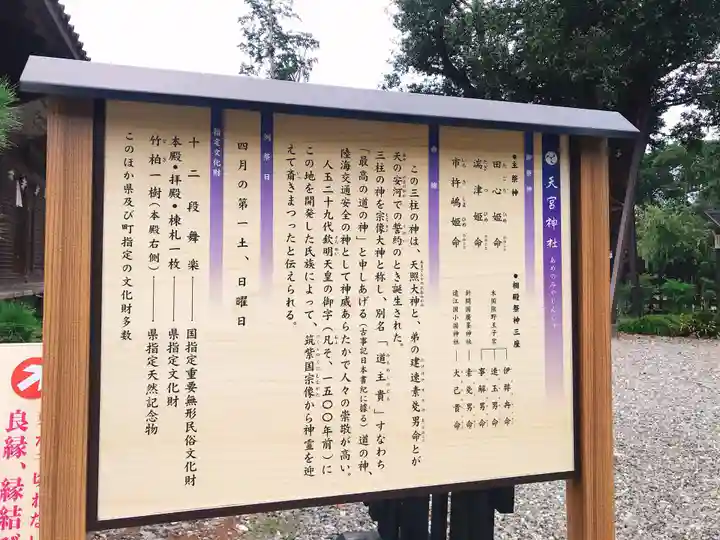 天宮神社
あめのみやじんじゃ
御祭神
●主祭神
田心姫命
湍津姫命
市杵嶋姫命
●相殿祭神三座
本国熊野王子宮
伊弉冉命
速玉男命
事解男命
素戔男命
遠江国小国神社
大己貴命
この三柱の神は、天照大神と、弟の建速素戔男命とが
天の安河での誓約のとき誕生された。
三柱の神を宗像大神と称し、別名「道主貴」すなわち
「最高の道の神」と申しあげる(古事記日本書紀に據る)道の神、
陸海交通安全の神として神威あらたかで人々の崇敬が高い。
人王二十九代欽明天皇の御宇(凡そ、一五〇〇年前)に
この地を開発した氏族によって、筑紫国宗像から神霊を迎
えて斎きまつったと伝えられる。
例祭日
四月の第一土、日曜日
指定文化財
十二段舞楽――国指定重要無形民俗文化財
本殿・拝殿・棟札一枚――県指定文化財
竹柏一樹(本殿右側)――県指定天然記念物
このほか県及び町指定の文化財多数
良縁、縁結び